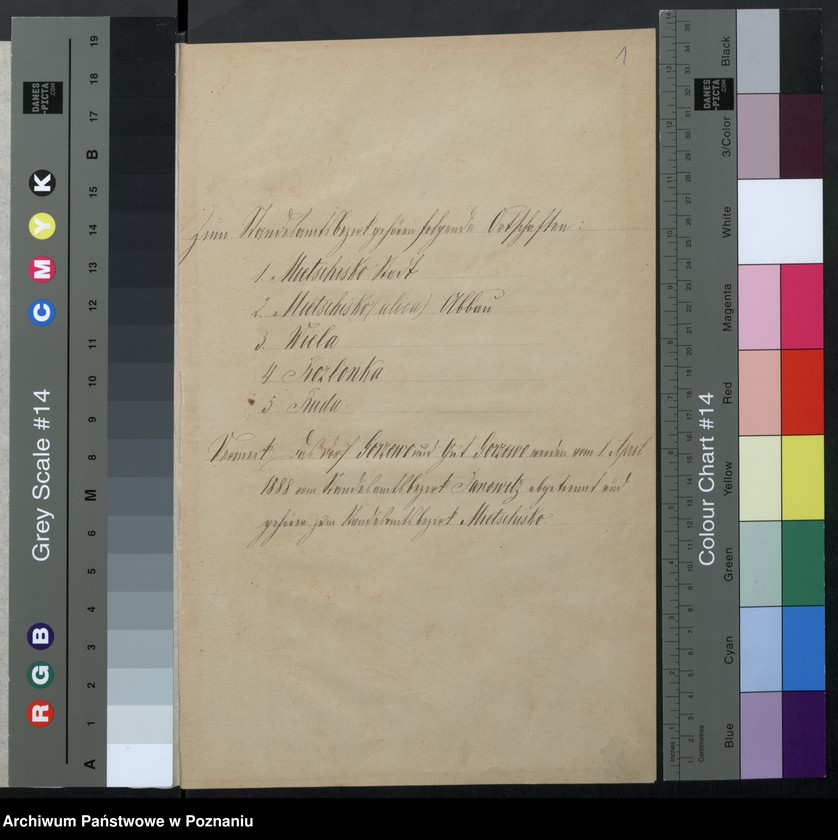 1
Zum Standesamtsbezirk gehören folgende Ortschaften:
1. Mietschisko Stadt
2. Mietschisko Abbau
3. Wiela
4 Kozlonka
5 Ruda
Vermerk: Das Dorf Gorzewo und Gut Gorzewo werden vom 1 April
1888 vom Standesamtsbezirk Janowitz abgetrennt und
gehören zum Standesamtsbezirk Mietschisko
Grey Scale #14
DANES
-PICTA
.COM
R G B C M Y K
A 1 2 3 4 5 6 M 8 9 10 11 12 13 14 15 B 17 18 19
Colour Chart #14
DANES
-PICTA
.COM
Blue Cyan Green Yellow Red Magenta White 3/Color Black
Inches
Centimetres
Archiwum Państwowe w Poznaniu